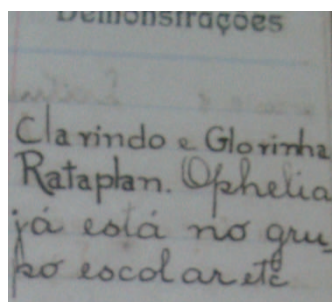 Demonstrações
Clarindo e Glorinha
Rataplan. Ophelia
já está no gru_
po escolar etc